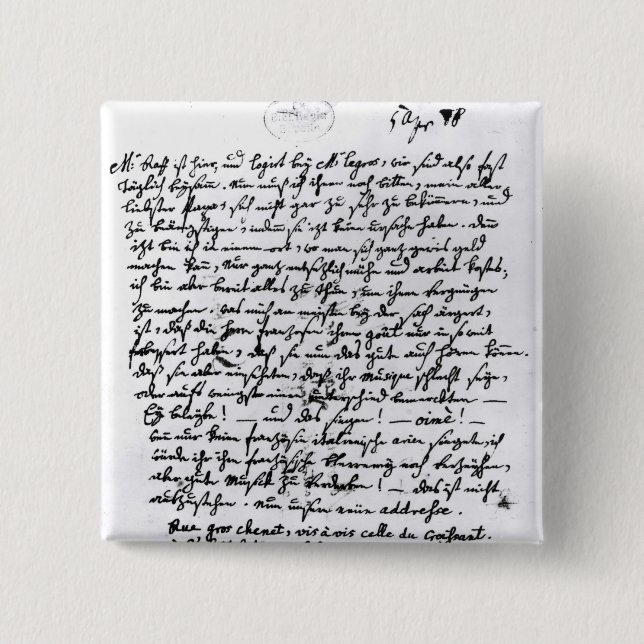 5 apr 78
Mr Raff ist hier, und logirt bey Mr legros, wir sind also fast
täglich beysamm. Nun muß ich ihnen noch bitten, mein aller-
liebster Papa, sich nicht gar zu sehr zu bekümmern, und
zu beängstigen, indemm sie izt keine ursache haben. denn
izt bin ich in einem ort, wo man sich ganz gewis geld
machen kann, Nur ganz entsetzlich mühe und arbeit kostets;
ich bin aber bereit alles zu thun, um ihnen vergnügen
zu machen. was mich am meisten bey der sach ärgert,
ist, daß die herrn franzosen ihren goût nur in so weit
verbessert haben, daß sie nun das gute auch hören können.
daß sie aber einseheten, daß ihr Musique schlecht seye,
oder aufs wenigste einen unterschied bemerckten —
Ey beleybe! — und das singen! — oimè! —
wen nur keine französin italienische arien singete, ich
würde ihr ihre französische Plerrerey noch verzeyhen,
aber gute Musik zu verderben! — das ist nicht
auszustehen. Nun unsere neüe addreße.
Rue gros chenet, vis à vis celle du Croissant.